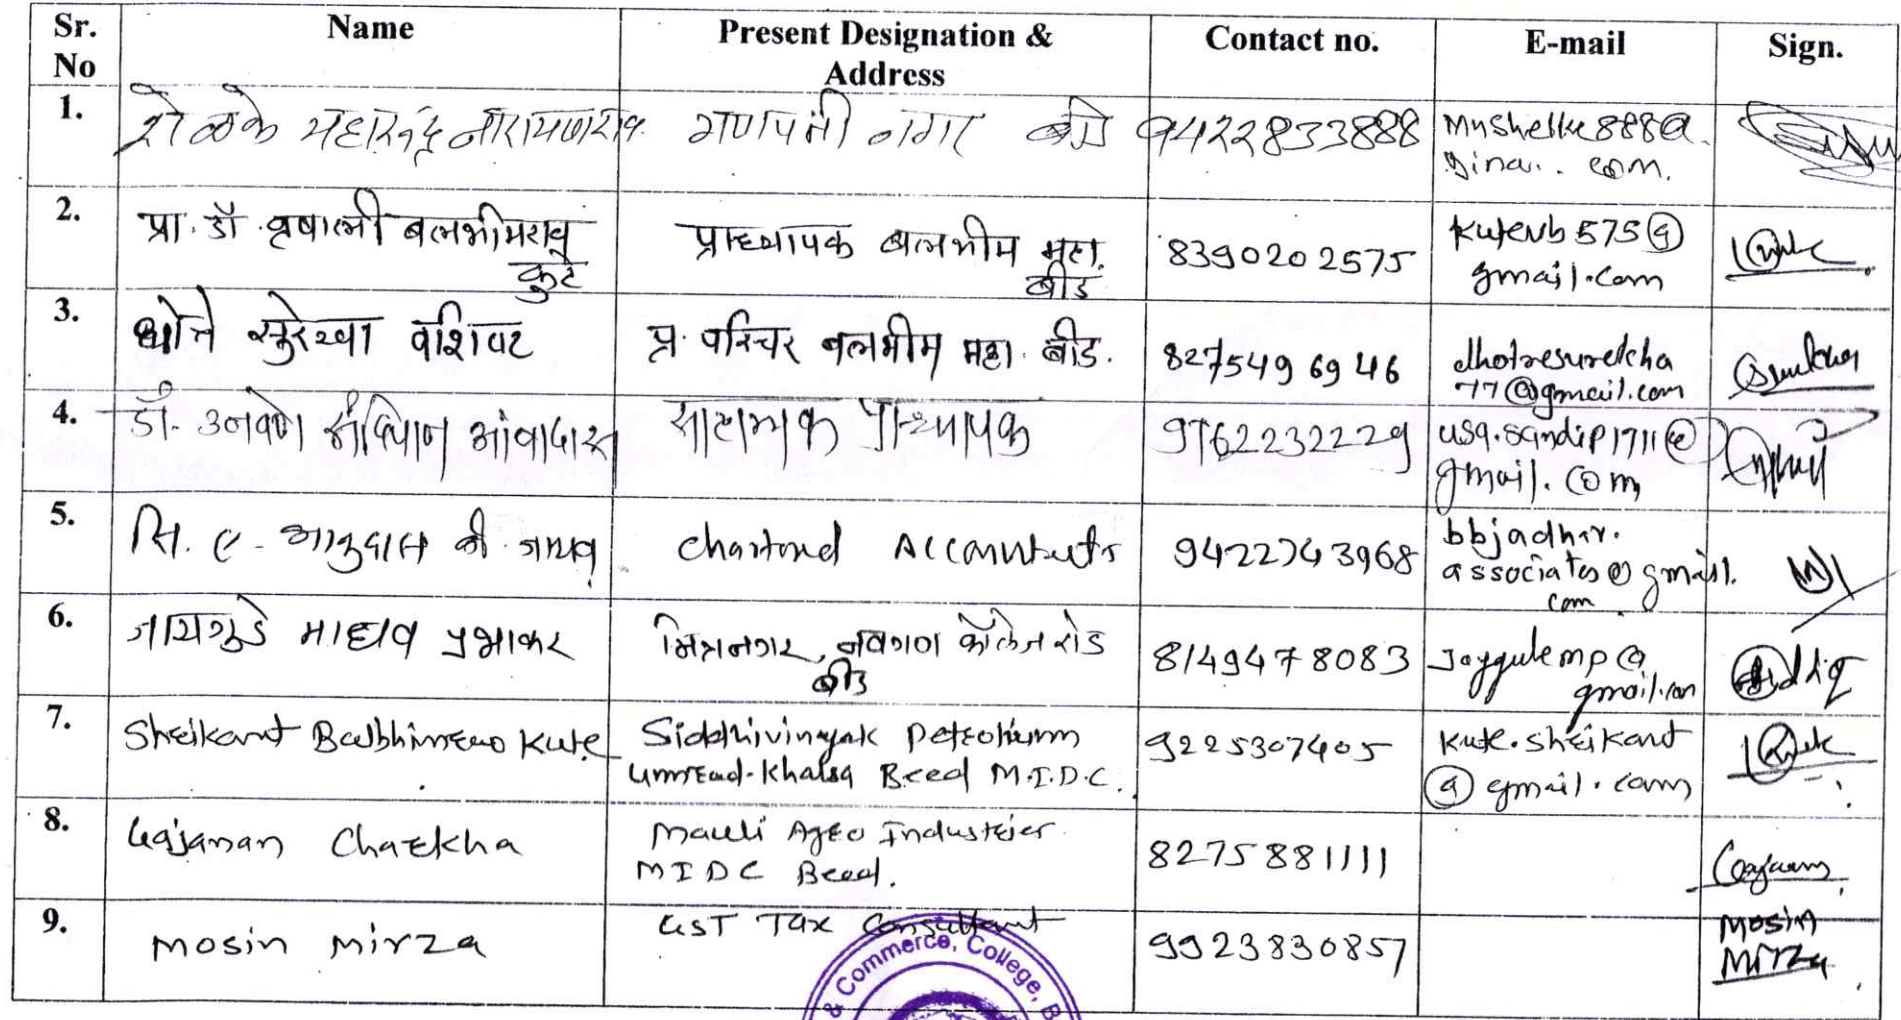 Sr. No Name Present Designation & Address Contact no. E-mail Sign.
1. शेळके नारायणराव गणपती नगर बीड 9422833888 mnshelke888@
2. प्रा. डॉ. वृषाली बलभीमराव कुटे प्राध्यापक बलभीम महा. बीड 8390202575 kutevb575@ gmail.com
3. धोत्रे सुरेखा वशिष्ट प्र. परिचर बलभीम महा. बीड. 8275496946 dhotresurekha 77@gmail.com
4. डॉ. उनवणे संदिपान आंबादास साहाय्यक प्राध्यापक 9762232229 usa.sandip1711@ gmail.com
5. सि. ए. बी. जाधव Chartered Accountants 9422743968 bbjadhvr. associates@gmail. com
6. जायगुडे माधव प्रभाकर मित्रनगर, नवगण कॉलेज रोड बीड 8149478083 Jaygudemp@ gmail.com
7. Shrikant Balbhimrao Kute Siddhivinayak Petroleum Umrad-Khalsa Beed M.I.D.C. 9225307405 kute.shrikant @gmail.com
8. Gajanan Charkha Mauli Agro Industries MIDC Beed. 8275881111 Gajanan
9. Mosin Mirza GST Tax Consultant 9923830857 Mosin Mirza
& Commerce, College, B